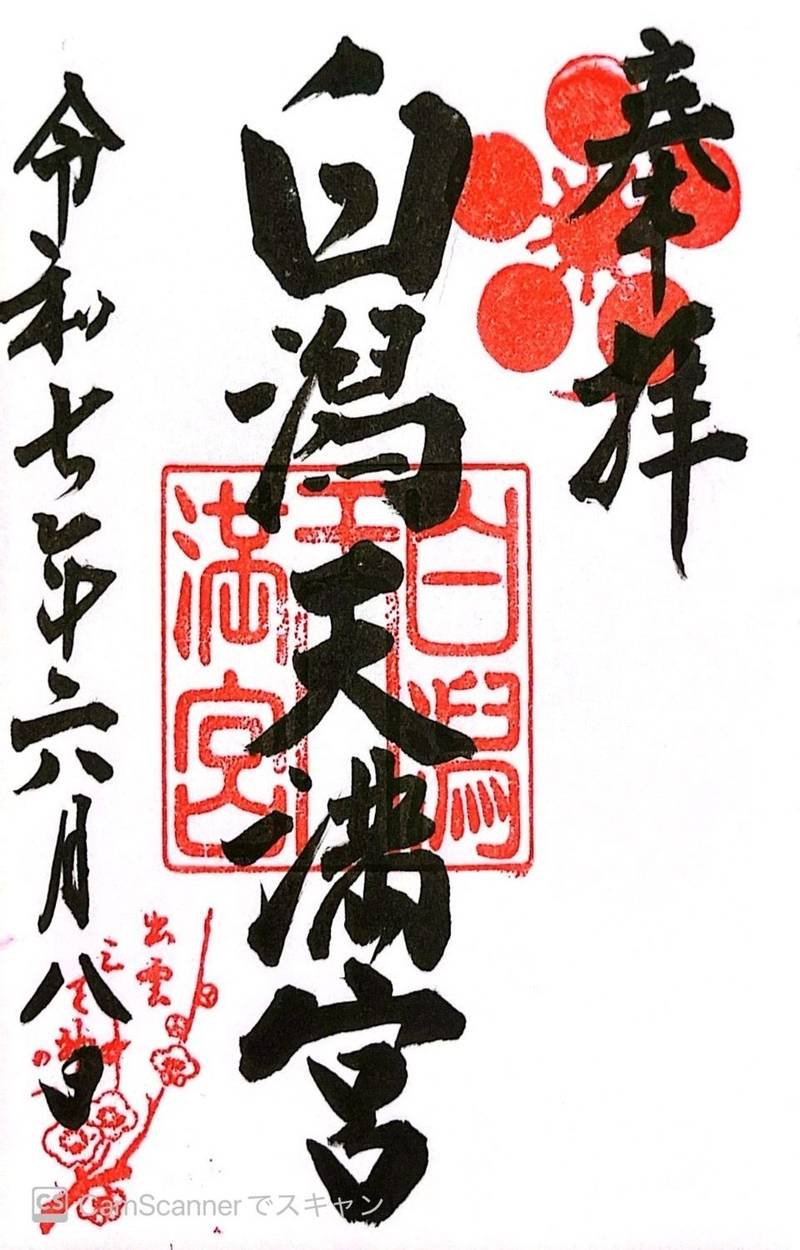 奉拝
白潟天満宮
令和七年六月八日
白潟
天
満宮
出雲
CS CamScannerでスキャン